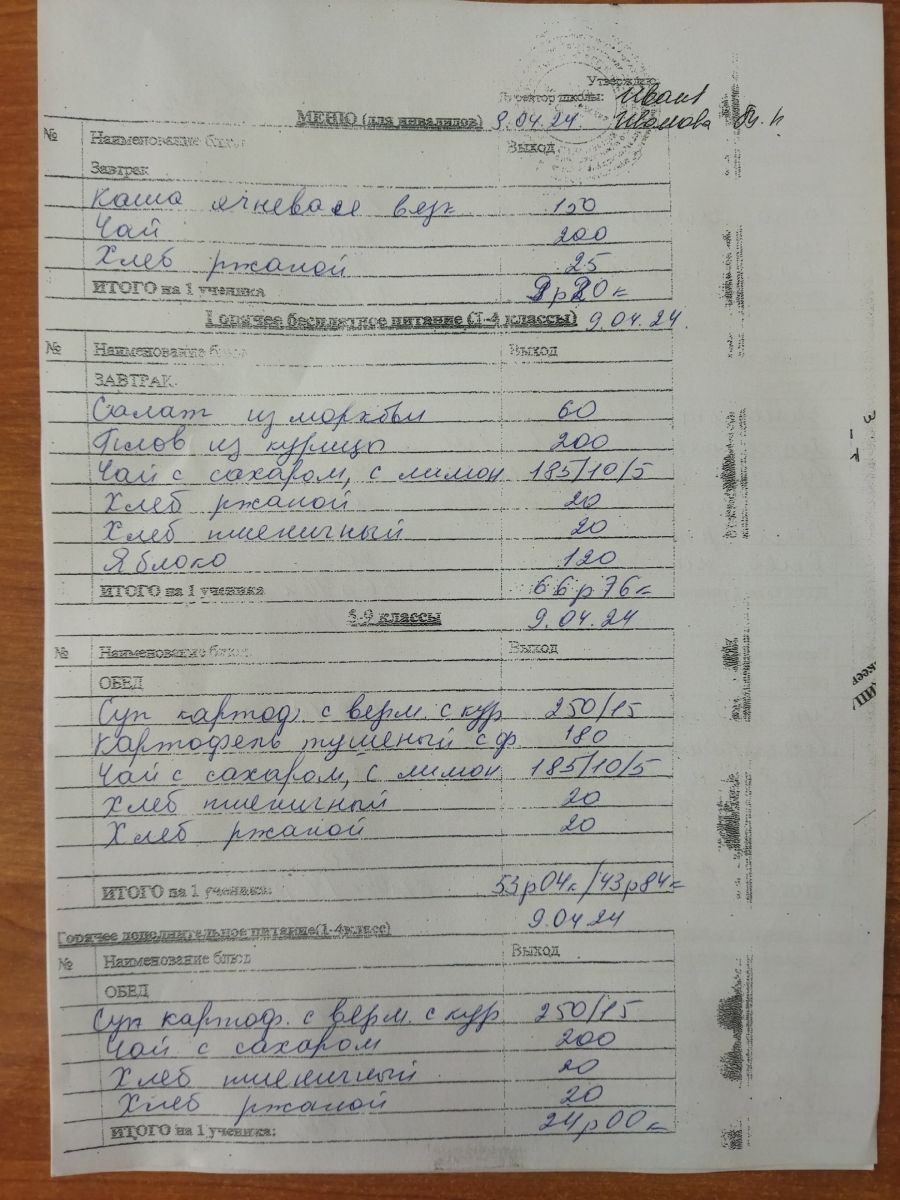 Утверждаю
Директор школы:
МЕНЮ (для инвалидов) 9.04.24
№ Наименование блюд Выход
Завтрак
Каша ячневая вязк 150
Чай 200
Хлеб ржаной 25
ИТОГО на 1 ученика
Горячее бесплатное питание (1-4 классы) 9.04.24.
№ Наименование блюд Выход
ЗАВТРАК
Салат из моркови 60
Плов из курицы 200
Чай с сахаром, с лимон 185/10/5
Хлеб ржаной 20
Хлеб пшеничный 20
Яблоко 120
ИТОГО на 1 ученика 66р76к
5-9 классы 9.04.24
№ Наименование блюд Выход
ОБЕД
Суп картоф. с верм. с кур 250/15
Картофель тушеный с ф 180
Чай с сахаром, с лимон 185/10/5
Хлеб пшеничный 20
Хлеб ржаной 20
ИТОГО на 1 ученика: 53р04к/43р84к
9.04 24
Горячее дополнительное питание(1-4класс)
№ Наименование блюд Выход
ОБЕД
Суп картоф. с верм. с кур 250/15
Чай с сахаром 200
Хлеб пшеничный 20
Хлеб ржаной 20
ИТОГО на 1 ученика: 24р00к